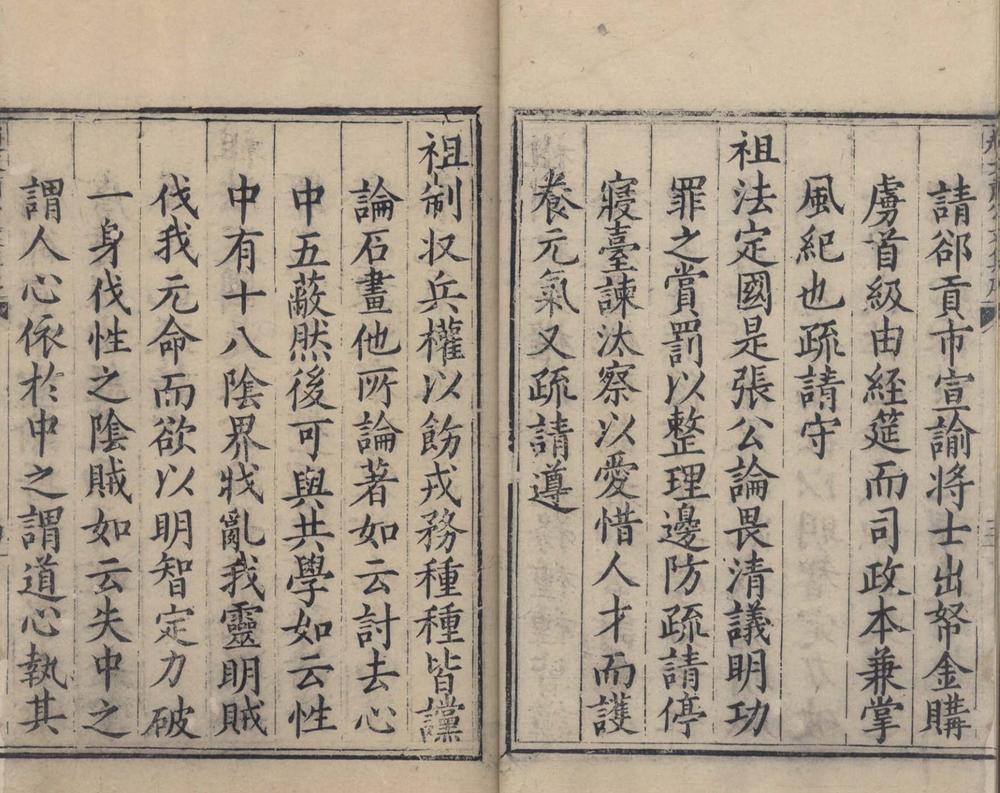 請郤貢市宣諭将士出帑金購
虜首級由経筵而司政本兼掌
風紀也疏請守
祖法定國是張公論畏清議明功
罪之賞罰以整理邊防疏請停
寢臺諫汰察以愛惜人才而護
養元氣又疏請遵
祖制収兵權以飭戎務種種皆讜
論石畫他所論著如云討去心
中五蔽然後可與共學如云性
中有十八陰界戕亂我靈明賊
伐我元命而欲以明智定力破
一身伐性之陰賊如云失中之
謂人心依於中之謂道心執其